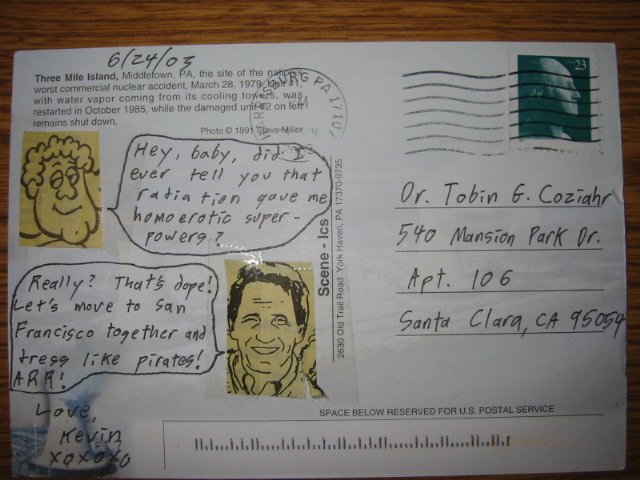 6/24/03
Three Mile Island, Middletown, PA, the site of the nation's
worst commercial nuclear accident, March 28, 1979. Unit #1,
with water vapor coming from its cooling towers, was
restarted in October 1985, while the damaged unit #2 on left
remains shut down.
Photo © 1991 Steve Miller
HARRISBURG PA 171
23
Hey, baby, did I
ever tell you that
radiation gave me
homoerotic super-
powers?
Really? That's dope!
Let's move to San
Francisco together and
dress like pirates!
ARR!
Love,
Kevin
XOXOXO
Scene-Ics
2630 Old Trail Road York Haven, PA 17370-9735
Dr. Tobin G. Coziahr
540 Mansion Park Dr.
Apt. 106
Santa Clara, CA 95054
SPACE BELOW RESERVED FOR U.S. POSTAL SERVICE